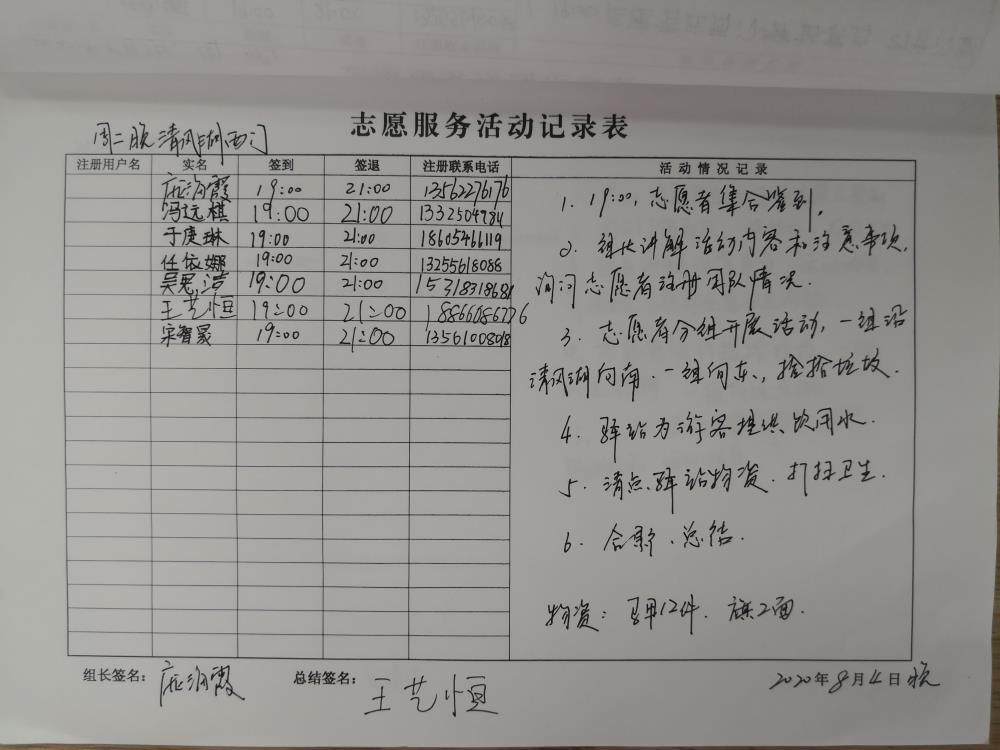 志愿服务活动记录表
周二晚清风湖西门
注册用户名 实名 签到 签退 注册联系电话 活动情况记录
19:00 21:00 13562276176
冯远棋 19:00 21:00 13325049784
于庚琳 19:00 21:00 18605466119
任依娜 19:00 21:00 13255618088
吴思 19:00 21:00 15318318681
王艺恒 19:00 21:00 18866086276
宋智冡 19:00 21:00 13561008018
1. 19:00,志愿者集合签到,
2. 组长讲解活动内容和注意事项,
询问志愿者注册团队情况.
3. 志愿者分组开展活动,一组沿
清风湖向南.一组向东,捡拾垃圾.
4. 驿站为游客提供饮用水.
5. 清点驿站物资.打扫卫生.
6. 合影、总结.
物资:马甲12件.旗2面.
组长签名: 总结签名:王艺恒 2020年8月4日晚